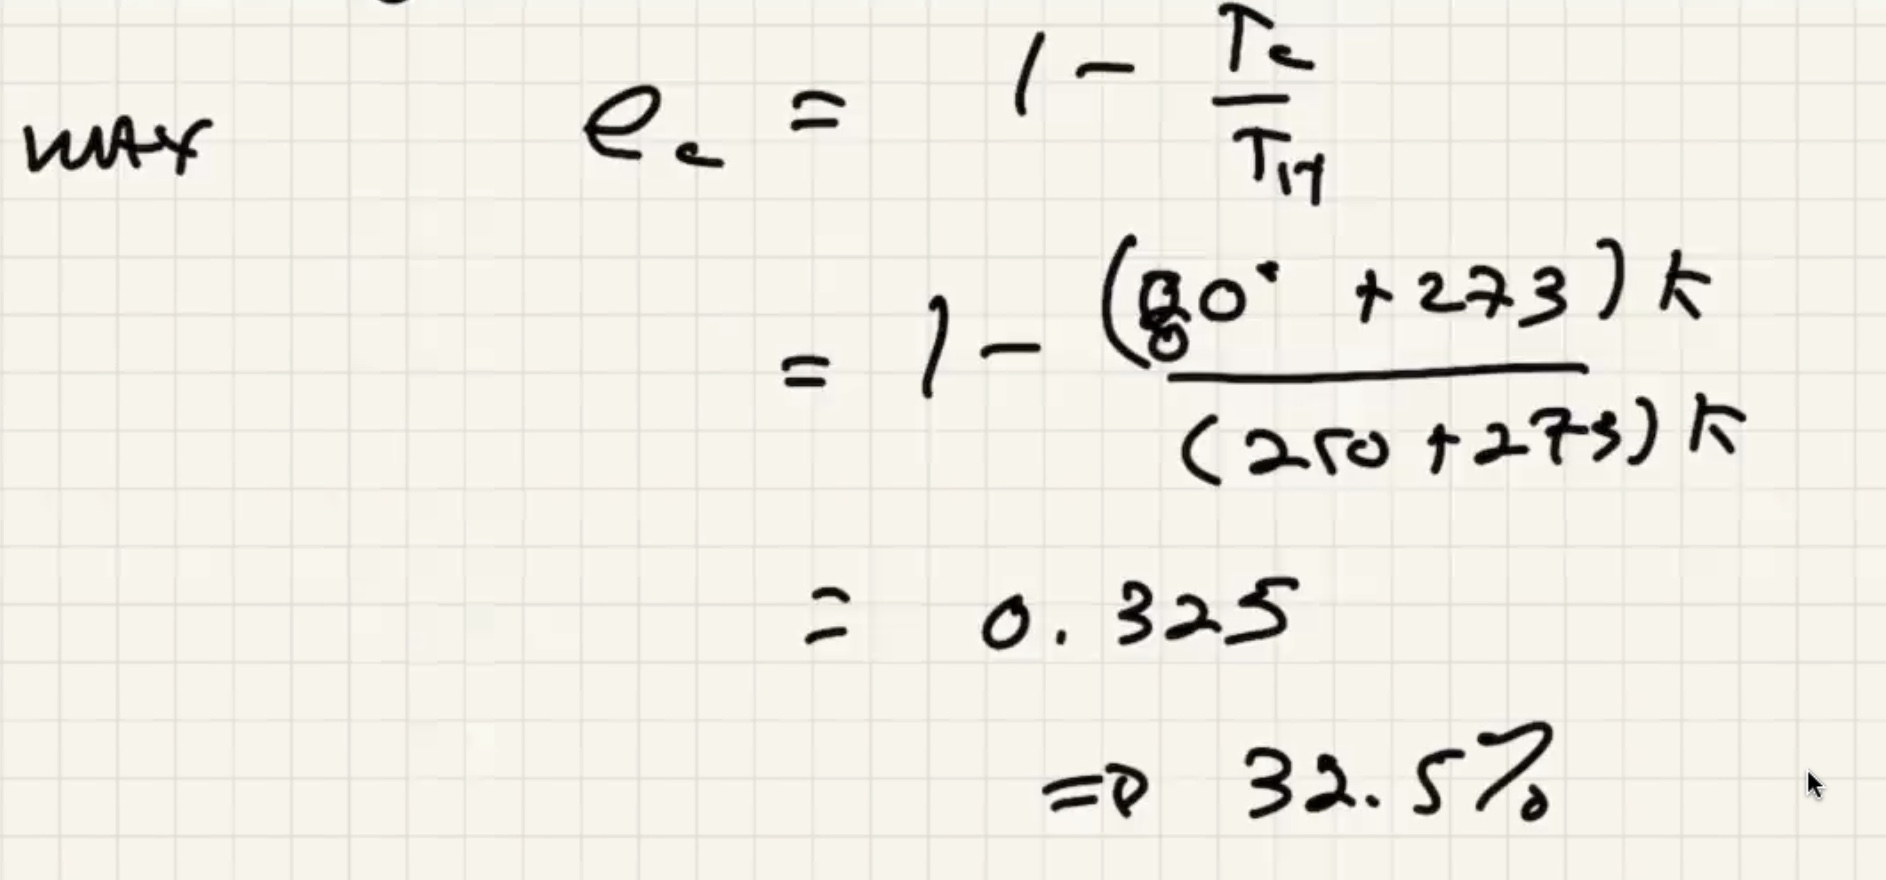 max e_c = 1 - T_c / T_H
= 1 - (80° + 273) K / (250 + 273) K
= 0.325
⇒ 32.5%